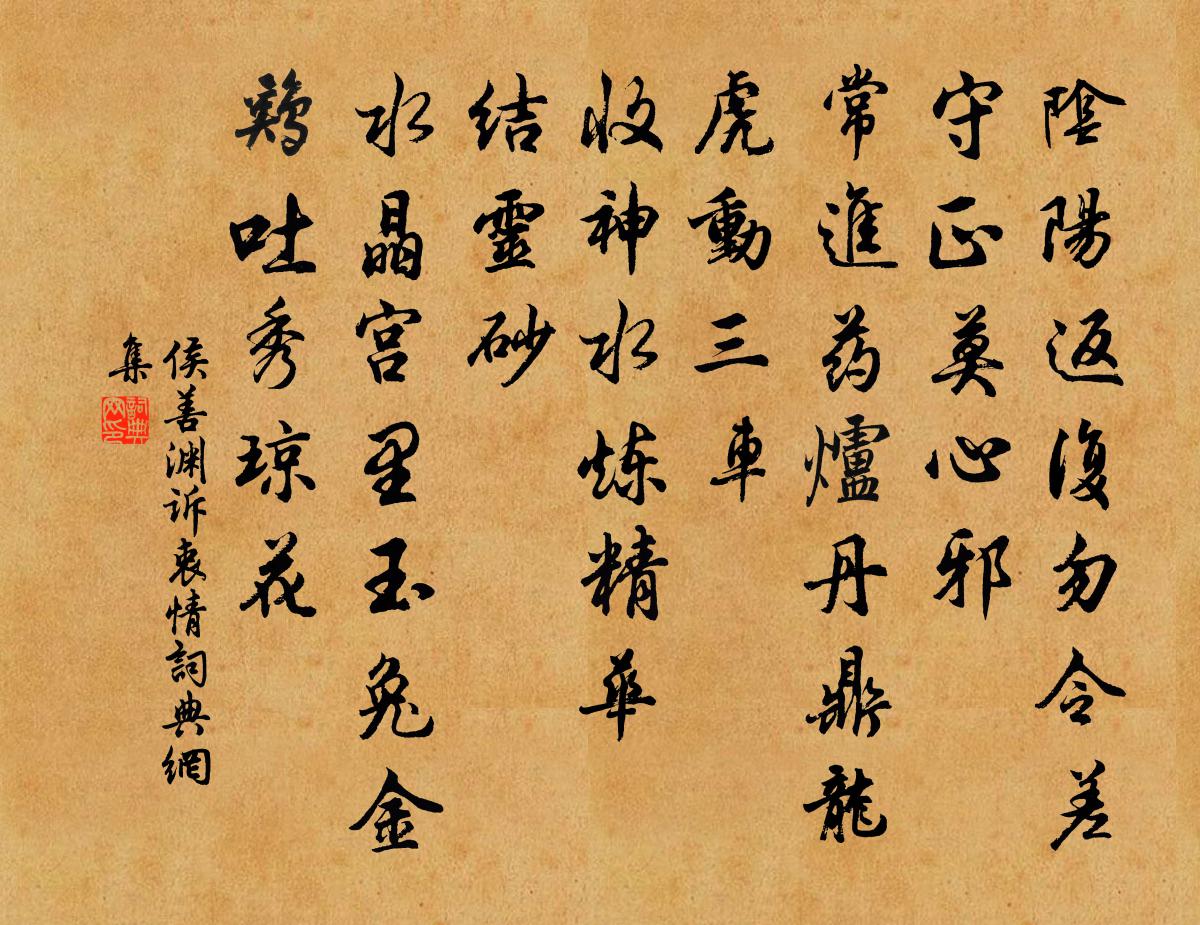 陰陽返復勿令差
守正莫心邪
常進药爐丹鼎龍
虎動三車
收神水炼精華
结靈砂
水晶宫里玉兔金
鷄吐秀琼花
侯善渊诉衷情詞典網
集
詞典網印